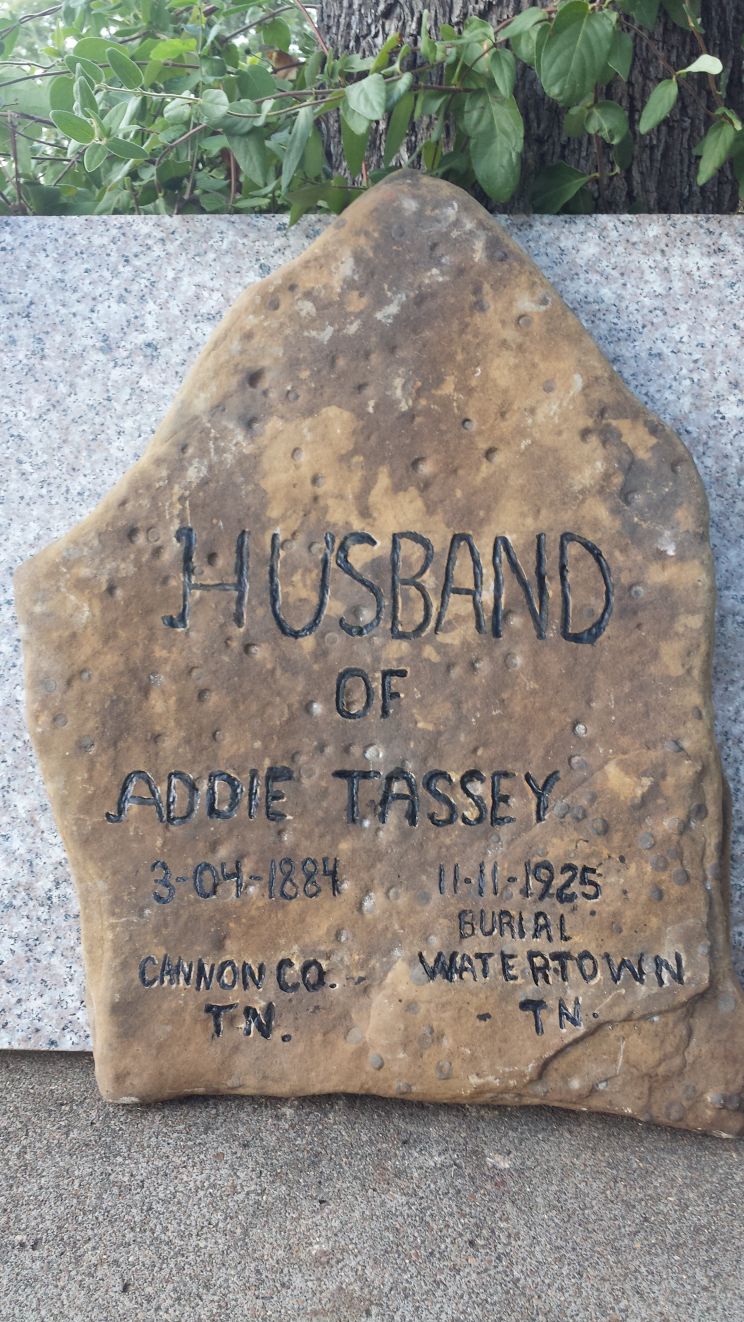 HUSBAND
OF
ADDIE TASSEY
3-04-1884 11-11-1925
BURIAL
CANNON CO. WATERTOWN
TN. - TN.